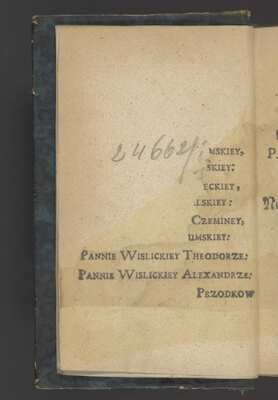 24662/i
MSKIEY,
SKIEY:
ECKIEY,
LSKIEY:
CZEMINEY,
UMSKIEY:
PANNIE WISLICKIEY THEODORZE:
PANNIE WISLICKIEY ALEXANDRZE:
PRZODKOW
P
No